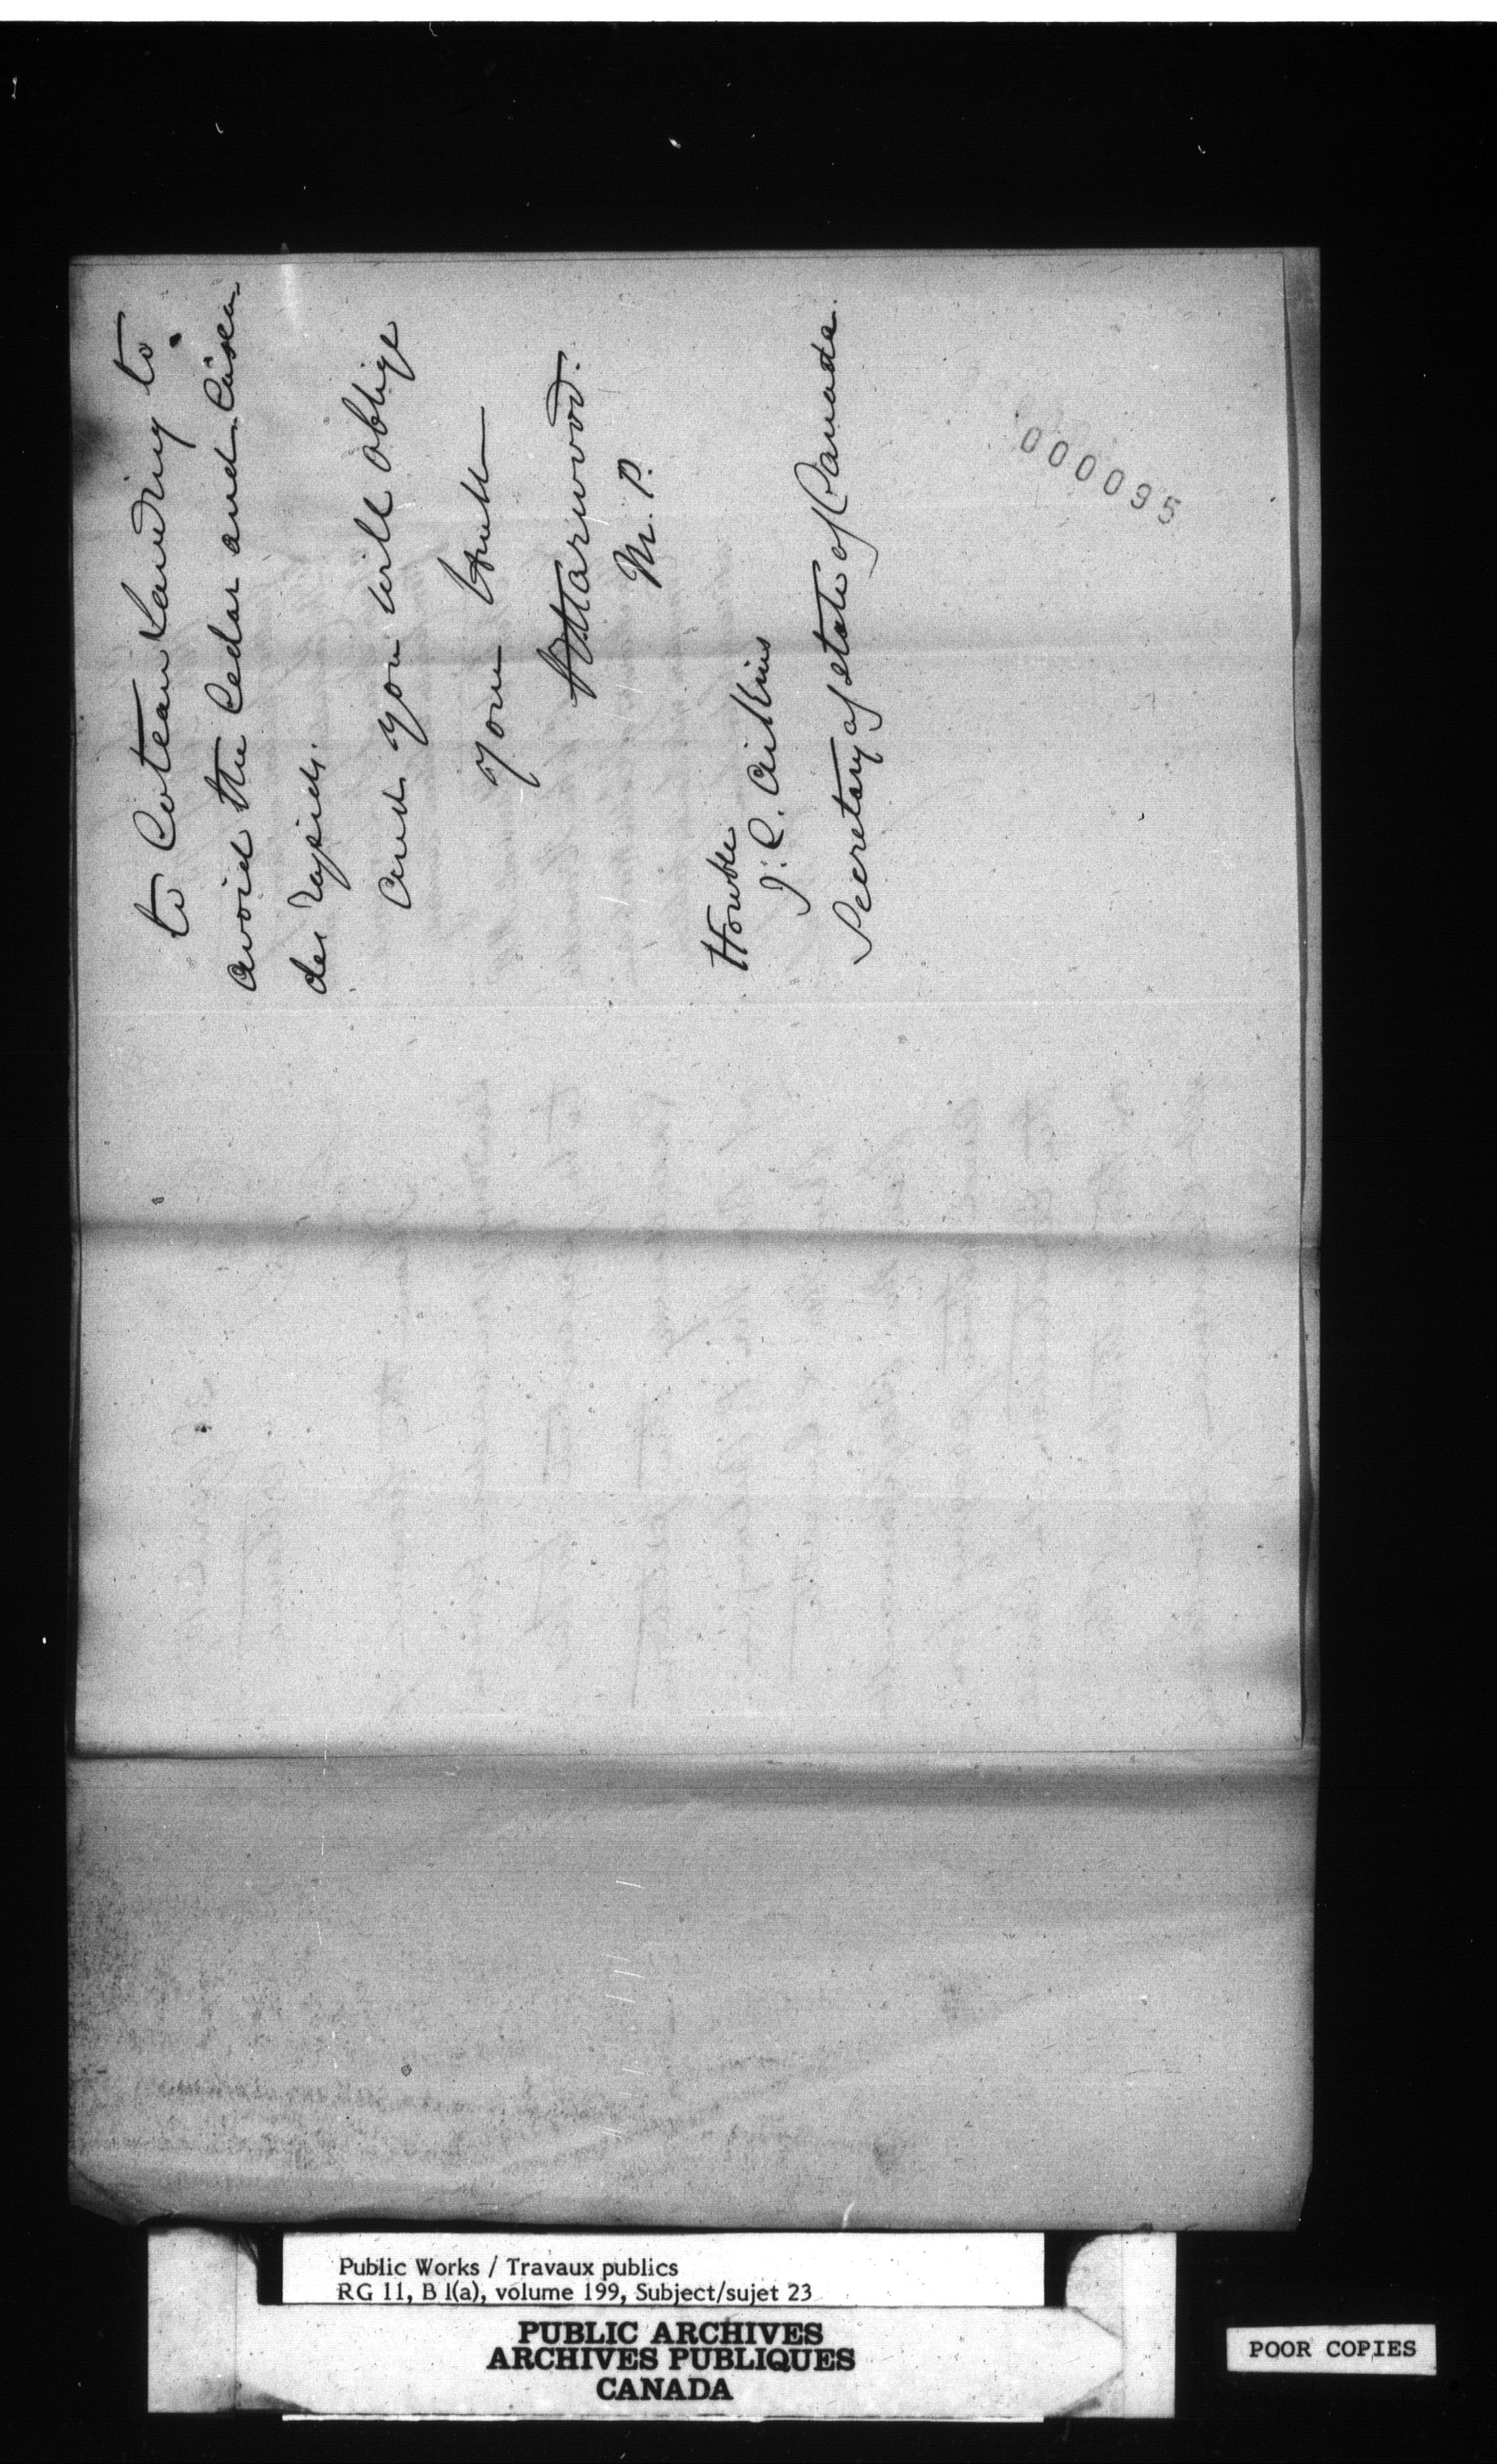 to Coteau Landing to
avoid the Cedar and Casca-
des rapids.
And you will oblige
Yours truly
Harwood.
M. P.
Honble
J. C. Aikins
Secretary of State of Canada.
000095
Public Works / Travaux publics
RG 11, B 1(a), volume 199, Subject/sujet 23
PUBLIC ARCHIVES
ARCHIVES PUBLIQUES
CANADA
POOR COPIES